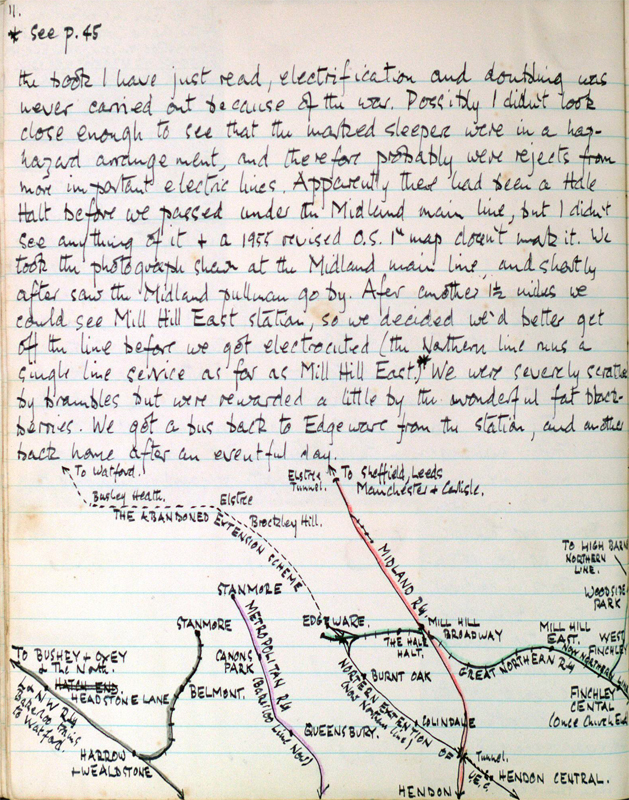 11.
* See p.45
the book I have just read, electrification and doubling was
never carried out because of the war. Possibly I didn't look
close enough to see that the marked sleepers were in a hap-
hazard arrangement, and therefore probably were rejects from
more important electric lines. Apparently there had been a Hale
Halt before we passed under the Midland main line, but I didn't
see anything of it + a 1955 revised O.S. 1" map doesn't mark it. We
took the photograph shewn at the Midland main line, and shortly
after saw the Midland pullman go by. Afer another 1½ miles we
could see Mill Hill East station, so we decided we'd better get
off the line before we got electrocuted (the Northern line runs a
single line service as far as Mill Hill East)* We were severely scratche
by brambles but were rewarded a little by the wonderful fat black-
berries. We got a bus back to Edgeware from the station, and another
back home after an eventful day.
To Watford.
Bushey Heath.
Elstree
THE ABANDONED EXTENSION SCHEME
Brockley Hill.
Elstree
Tunnel.
To Sheffield, Leeds
Manchester + Carlisle.
MIDLAND RLY.
TO HIGH BARN
NORTHERN
LINE.
WOODSIDE
PARK
STANMORE
STANMORE
METROPOLITAN RLY
(Bakerloo Line Now)
CANONS
PARK
QUEENSBURY.
EDGEWARE.
THE HALE
HALT.
MILL HILL
BROADWAY
MILL HILL
EAST.
WEST
FINCHLEY
GREAT NORTHERN RLY
NOW NORTHERN LINE
FINCHLEY
CENTAL
(Once Church End
TO BUSHEY + OXEY
+ The North.
HATCH END
HEADSTONE LANE
L+NW RLY
Bakerloo trains
to Watford.
BELMONT.
HARROW
+ WEALDSTONE
BURNT OAK
NORTERN EXTENTION
(now Northern line)
COLINDALE
Tunnel.
HENDON
HENDON CENTRAL.